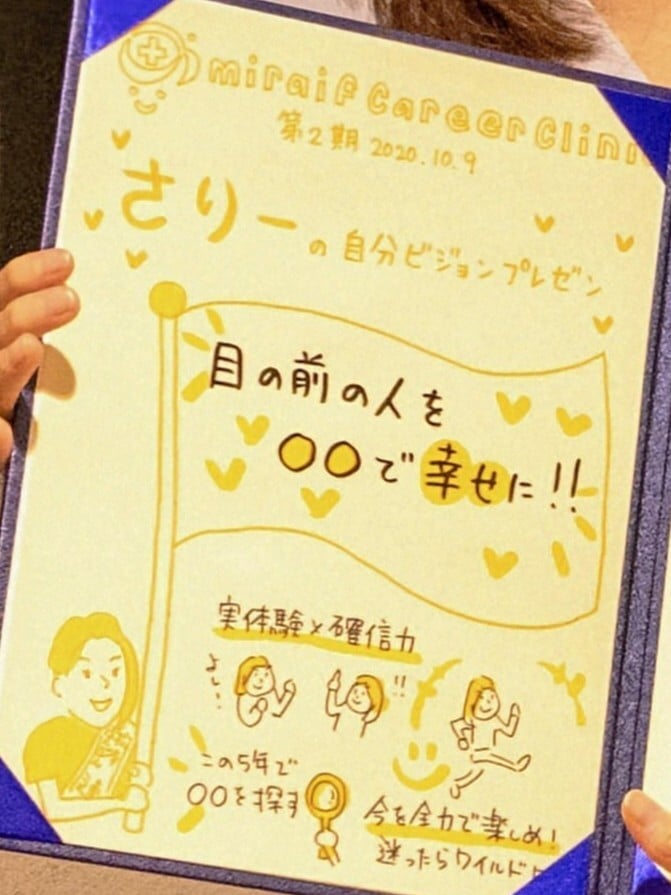 miraif Career Clini
第2期 2020.10.9
さりーの自分ビジョンプレゼン
目の前の人を
〇〇で幸せに!!
実体験×確信力
よし…
!!
この5年で
〇〇を探す
今を全力で楽しめ!
迷ったらワイルド